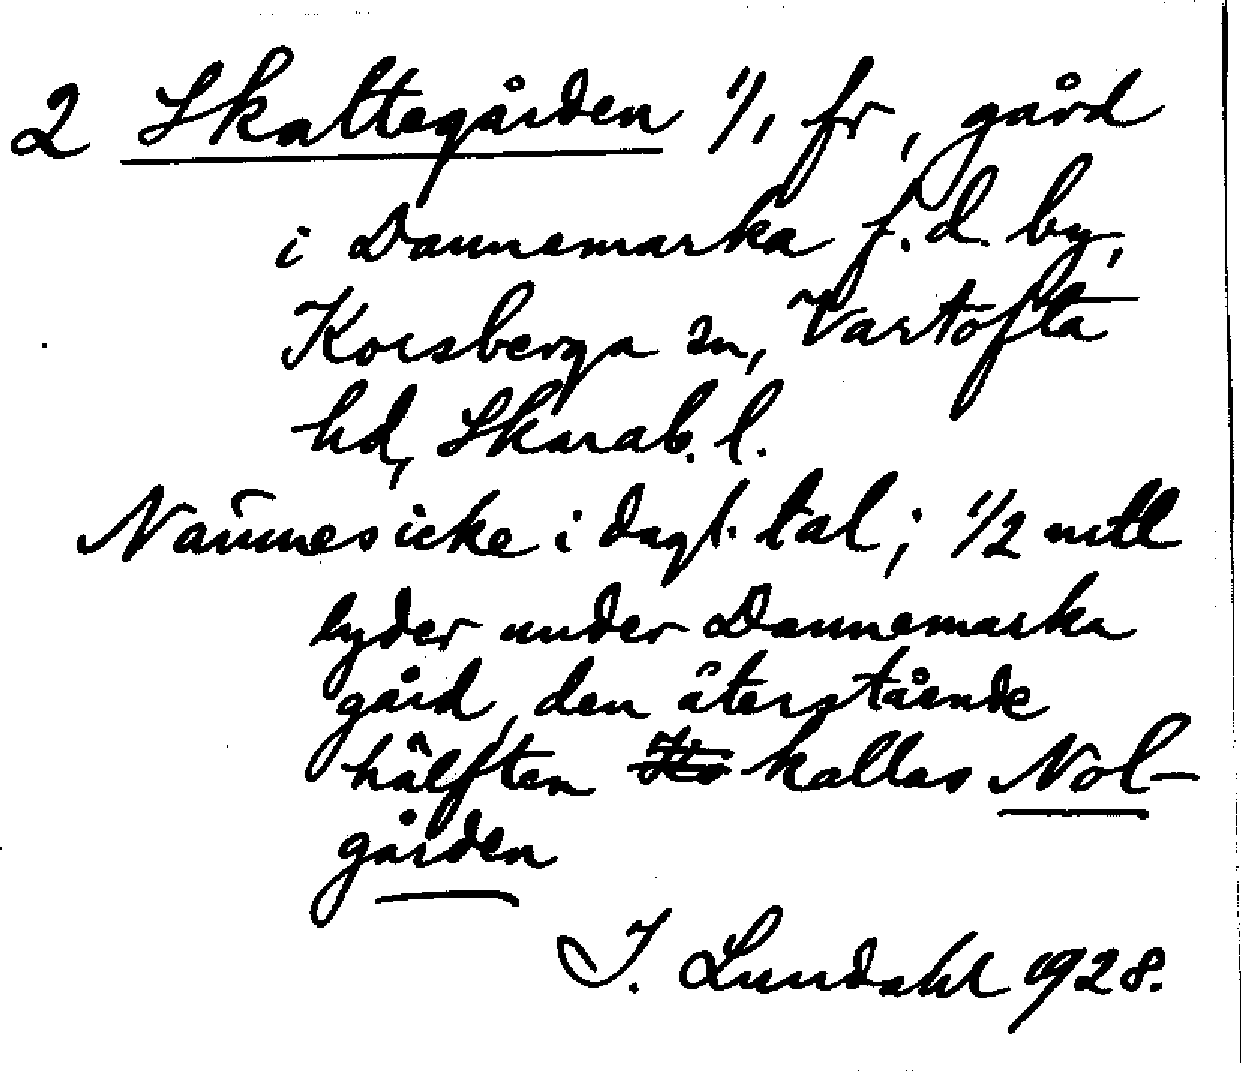 2 Skattegården 1/1 fr, gård
i Dannemarka f.d. by,
Korsberga sn, Vartofta
hd, Skarab. l.
Nämnes icke i dagl. tal; 1/2 mtl
lyder under Dannemarka
gård, den återstående
hälften kallas Nol-
gården
I. Lundahl 1928.